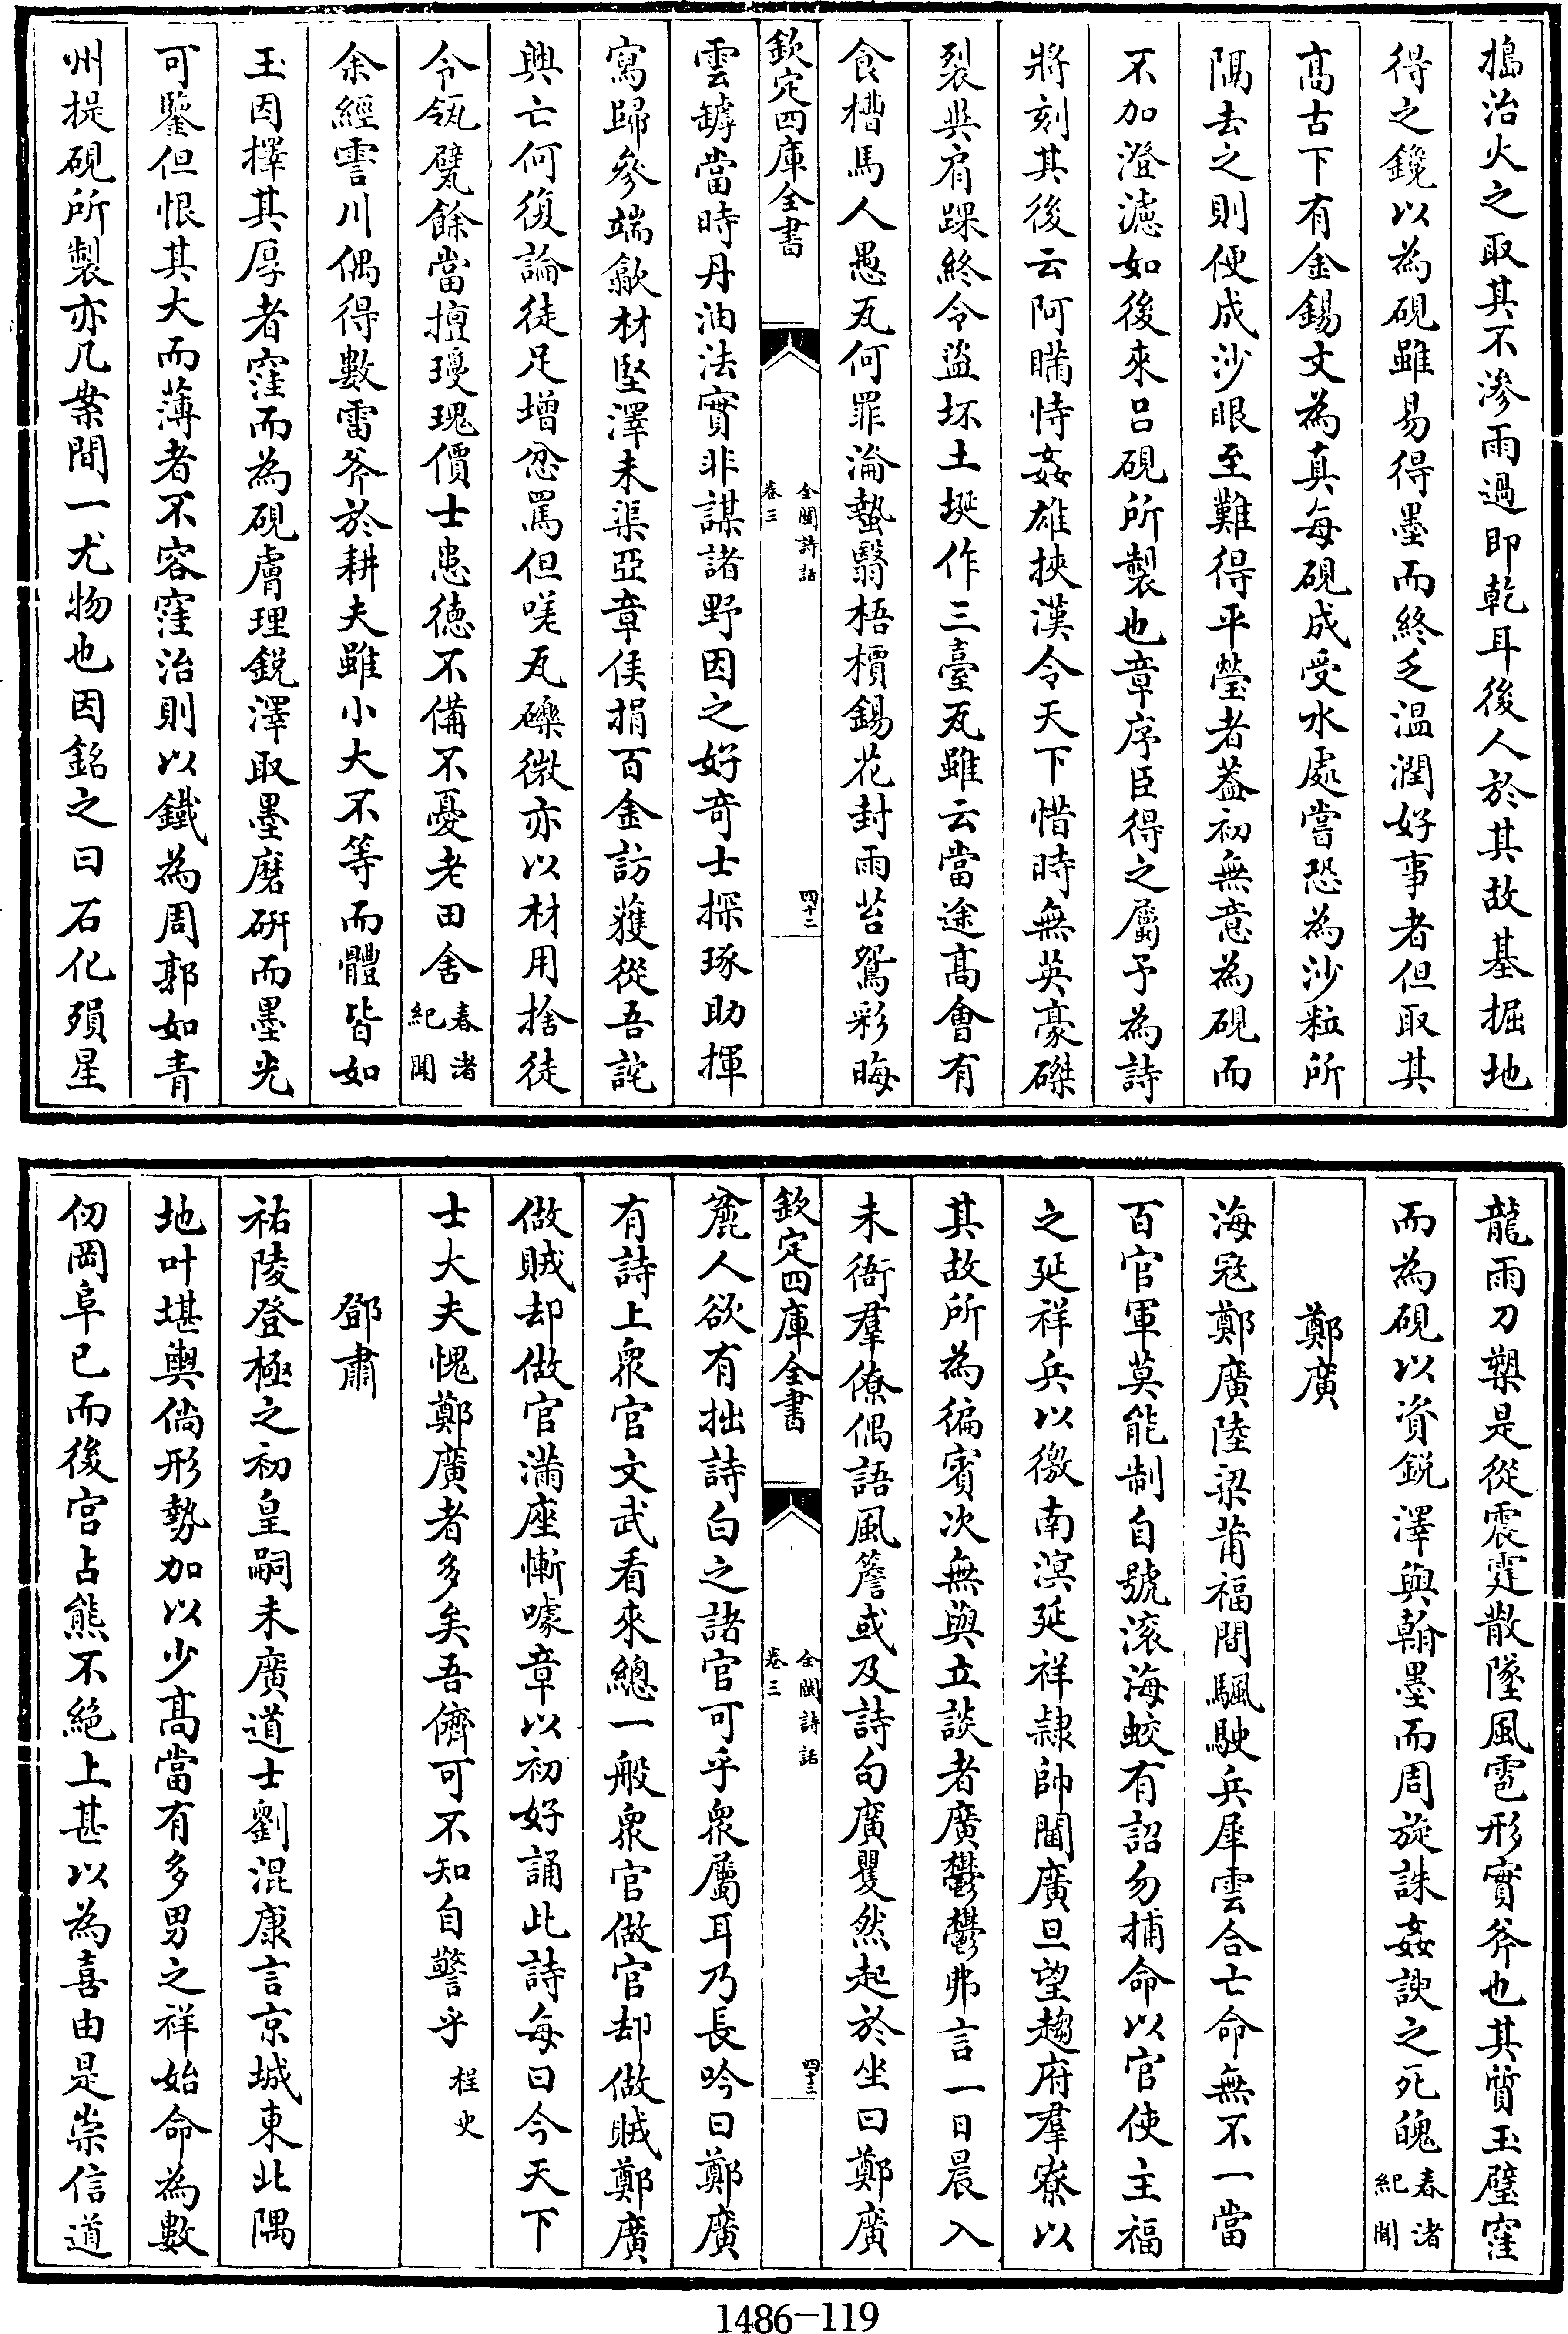 搗治火之取其不滲雨過即乾耳後人於其故基掘地
得之鑱以為硯雖易得墨而終乏温潤好事者但取其
髙古下有金錫文為真每硯成受水處嘗恐為沙粒所
隔去之則便成沙眼至難得平瑩者葢初無意為硯而
不加澄濾如後來吕硯所製也章序臣得之屬予為詩
將刻其後云阿瞞恃姦雄挾漢令天下惜時無英豪磔
裂異肩踝終令盜坏土埏作三臺瓦雖云當途髙會有
食槽馬人愚瓦何罪淪蟄翳梧檟錫花封雨苔鴛彩晦
欽定四庫全書
全閩詩話
卷三
四十二
雲罅當時丹油法實非謀諸野因之好竒士探琢助揮
寫歸參端歙材堅澤未渠亞章侯捐百金訪獲從吾詫
興亡何復論徒足增忿罵但嗟瓦礫微亦以材用捨徒
令瓴甓餘當擅瓊瑰價士患德不備不憂老田舍春渚
紀聞
余經霅川偶得數雷斧於耕夫雖小大不等而體皆如
玉因擇其厚者窪而為硯膚理鋭澤取墨磨研而墨光
可鑒但恨其大而薄者不容窪治則以鐵為周郭如青
州提硯所製亦几案間一尤物也因銘之曰石化殞星
龍雨刀槊是從震霆散墜風雹形實斧也其質玉璧窪
而為硯以資鋭澤與翰墨而周旋誅姦諛之死魄春渚
紀聞
鄭廣
海冦鄭廣陸梁莆福間驅駛兵犀雲合亡命無不一當
百官軍莫能制自號滾海蛟有詔勿捕命以官使主福
之延祥兵以徼南溟延祥隷帥閫廣旦望趨府羣寮以
其故所為徧賓次無與立談者廣鬱鬱弗言一日晨入
未衙羣僚偶語風簷或及詩句廣矍然起於坐曰鄭廣
欽定四庫全書
全閩詩話
卷三
四十三
麄人欲有拙詩白之諸官可乎衆屬耳乃長吟曰鄭廣
有詩上衆官文武看來總一般衆官做官却做賊鄭廣
做賊却做官滿座慚噱章以初好誦此詩每曰今天下
士大夫愧鄭廣者多矣吾儕可不知自警乎桯史
鄧肅
祐陵登極之初皇嗣未廣道士劉混康言京城東北隅
地叶堪輿倘形勢加以少髙當有多男之祥始命為數
仞岡阜已而後宫占熊不絶上甚以為喜由是崇信道
1486-119